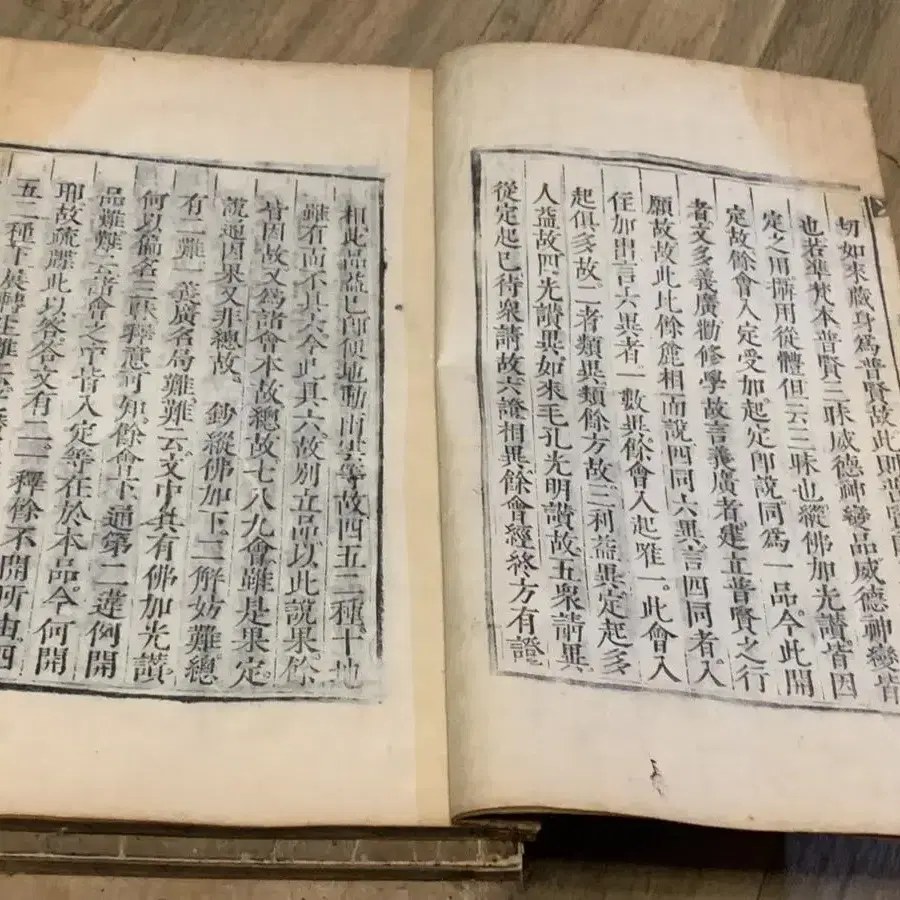 切如來藏身爲普賢故此則普賢
也若準梵本普賢三昧威德神變品威德神變皆
定之用用從體但云三昧也縱佛加光讚皆因
定故餘會入定受加起定卽說同爲一品今此開
者文多義廣勸修學故言義廣者建立普賢之行
願故故此比餘麁相而說四同六異言四同者入
住加出言六異者一數異餘會入起唯一此會入
起俱多故二者類異類餘方故三利益異定起多
人益故四光讚異如來毛孔光明讚故五衆請異
從定起已待衆請故六證相異餘會經終方有證
相此品益已卽便地動雨雲等故四五二種十地
雖有而不具六今此具六故別立品以此說果餘
皆因故又爲諸會本故總故七八九會雖是果定
說通因果又非總故 鈔縱佛加下二解妨難總
有二難一義廣名局難難云文中具有佛加光讚
何以偏名三昧釋意可知餘會下通第二蓮例開
品難難云諸會之中皆入定等在於本品今何開
耶故疏躡此以答答文有二一釋餘不開所由四
五二種下展轉